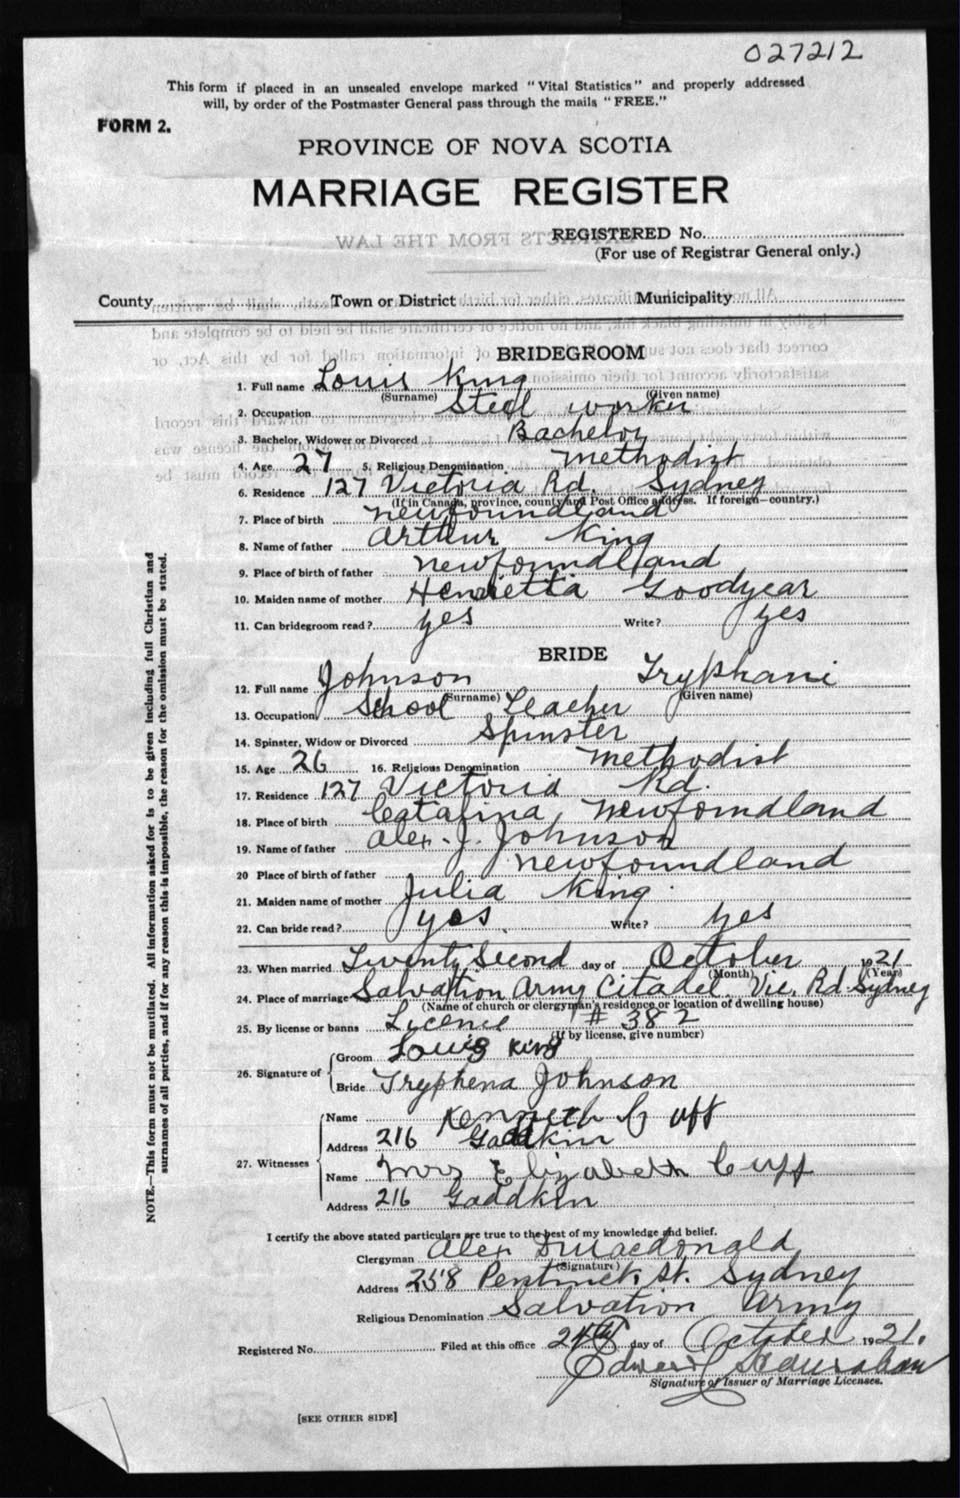 027212
This form if placed in an unsealed envelope marked "Vital Statistics" and properly addressed
will, by order of the Postmaster General pass through the mails "FREE."
FORM 2.
PROVINCE OF NOVA SCOTIA
MARRIAGE REGISTER
REGISTERED No.
(For use of Registrar General only.)
County Town or District Municipality
BRIDEGROOM
1. Full name Louis King
(Surname) (Given name)
2. Occupation Steel worker
3. Bachelor, Widower or Divorced Bachelor
4. Age 27 5. Religious Denomination Methodist
6. Residence 127 Victoria Rd. Sydney
(If in Canada, province, county and Post Office address. If foreign—country.)
7. Place of birth Newfoundland
8. Name of father Arthur King
9. Place of birth of father Newfoundland
10. Maiden name of mother Henrietta Goodyear
11. Can bridegroom read? yes Write? yes
BRIDE
12. Full name Johnson Tryphani
(Surname) (Given name)
13. Occupation School Teacher
14. Spinster, Widow or Divorced Spinster
15. Age 26 16. Religious Denomination Methodist
17. Residence 127 Victoria Rd.
18. Place of birth Catalina Newfoundland
19. Name of father Alex. J. Johnson
20 Place of birth of father Newfoundland
21. Maiden name of mother Julia King
22. Can bride read? yes. Write? yes
23. When married Twenty Second day of October 1921
(Month) (Year)
24. Place of marriage Salvation Army Citadel, Vic. Rd. Sydney
(Name of church or clergyman's residence or location of dwelling house)
25. By license or banns License # 382
(If by license, give number)
26. Signature of
Groom Louis King
Bride Tryphena Johnson
27. Witnesses
Name Kenneth Cuff
Address 216
Name Mrs Elizabeth Cuff
Address 216
I certify the above stated particulars are true to the best of my knowledge and belief.
Clergyman Alex Macdonald
(Signature)
Address 258 St. Sydney
Religious Denomination Salvation Army
Registered No. Filed at this office 24th day of October 1921.
Edward
Signature of Issuer of Marriage Licenses.
[SEE OTHER SIDE]
NOTE.—This form must not be mutilated. All information asked for is to be given including full Christian and
surnames of all parties, and if for any reason this is impossible, the reason for the omission must be stated.